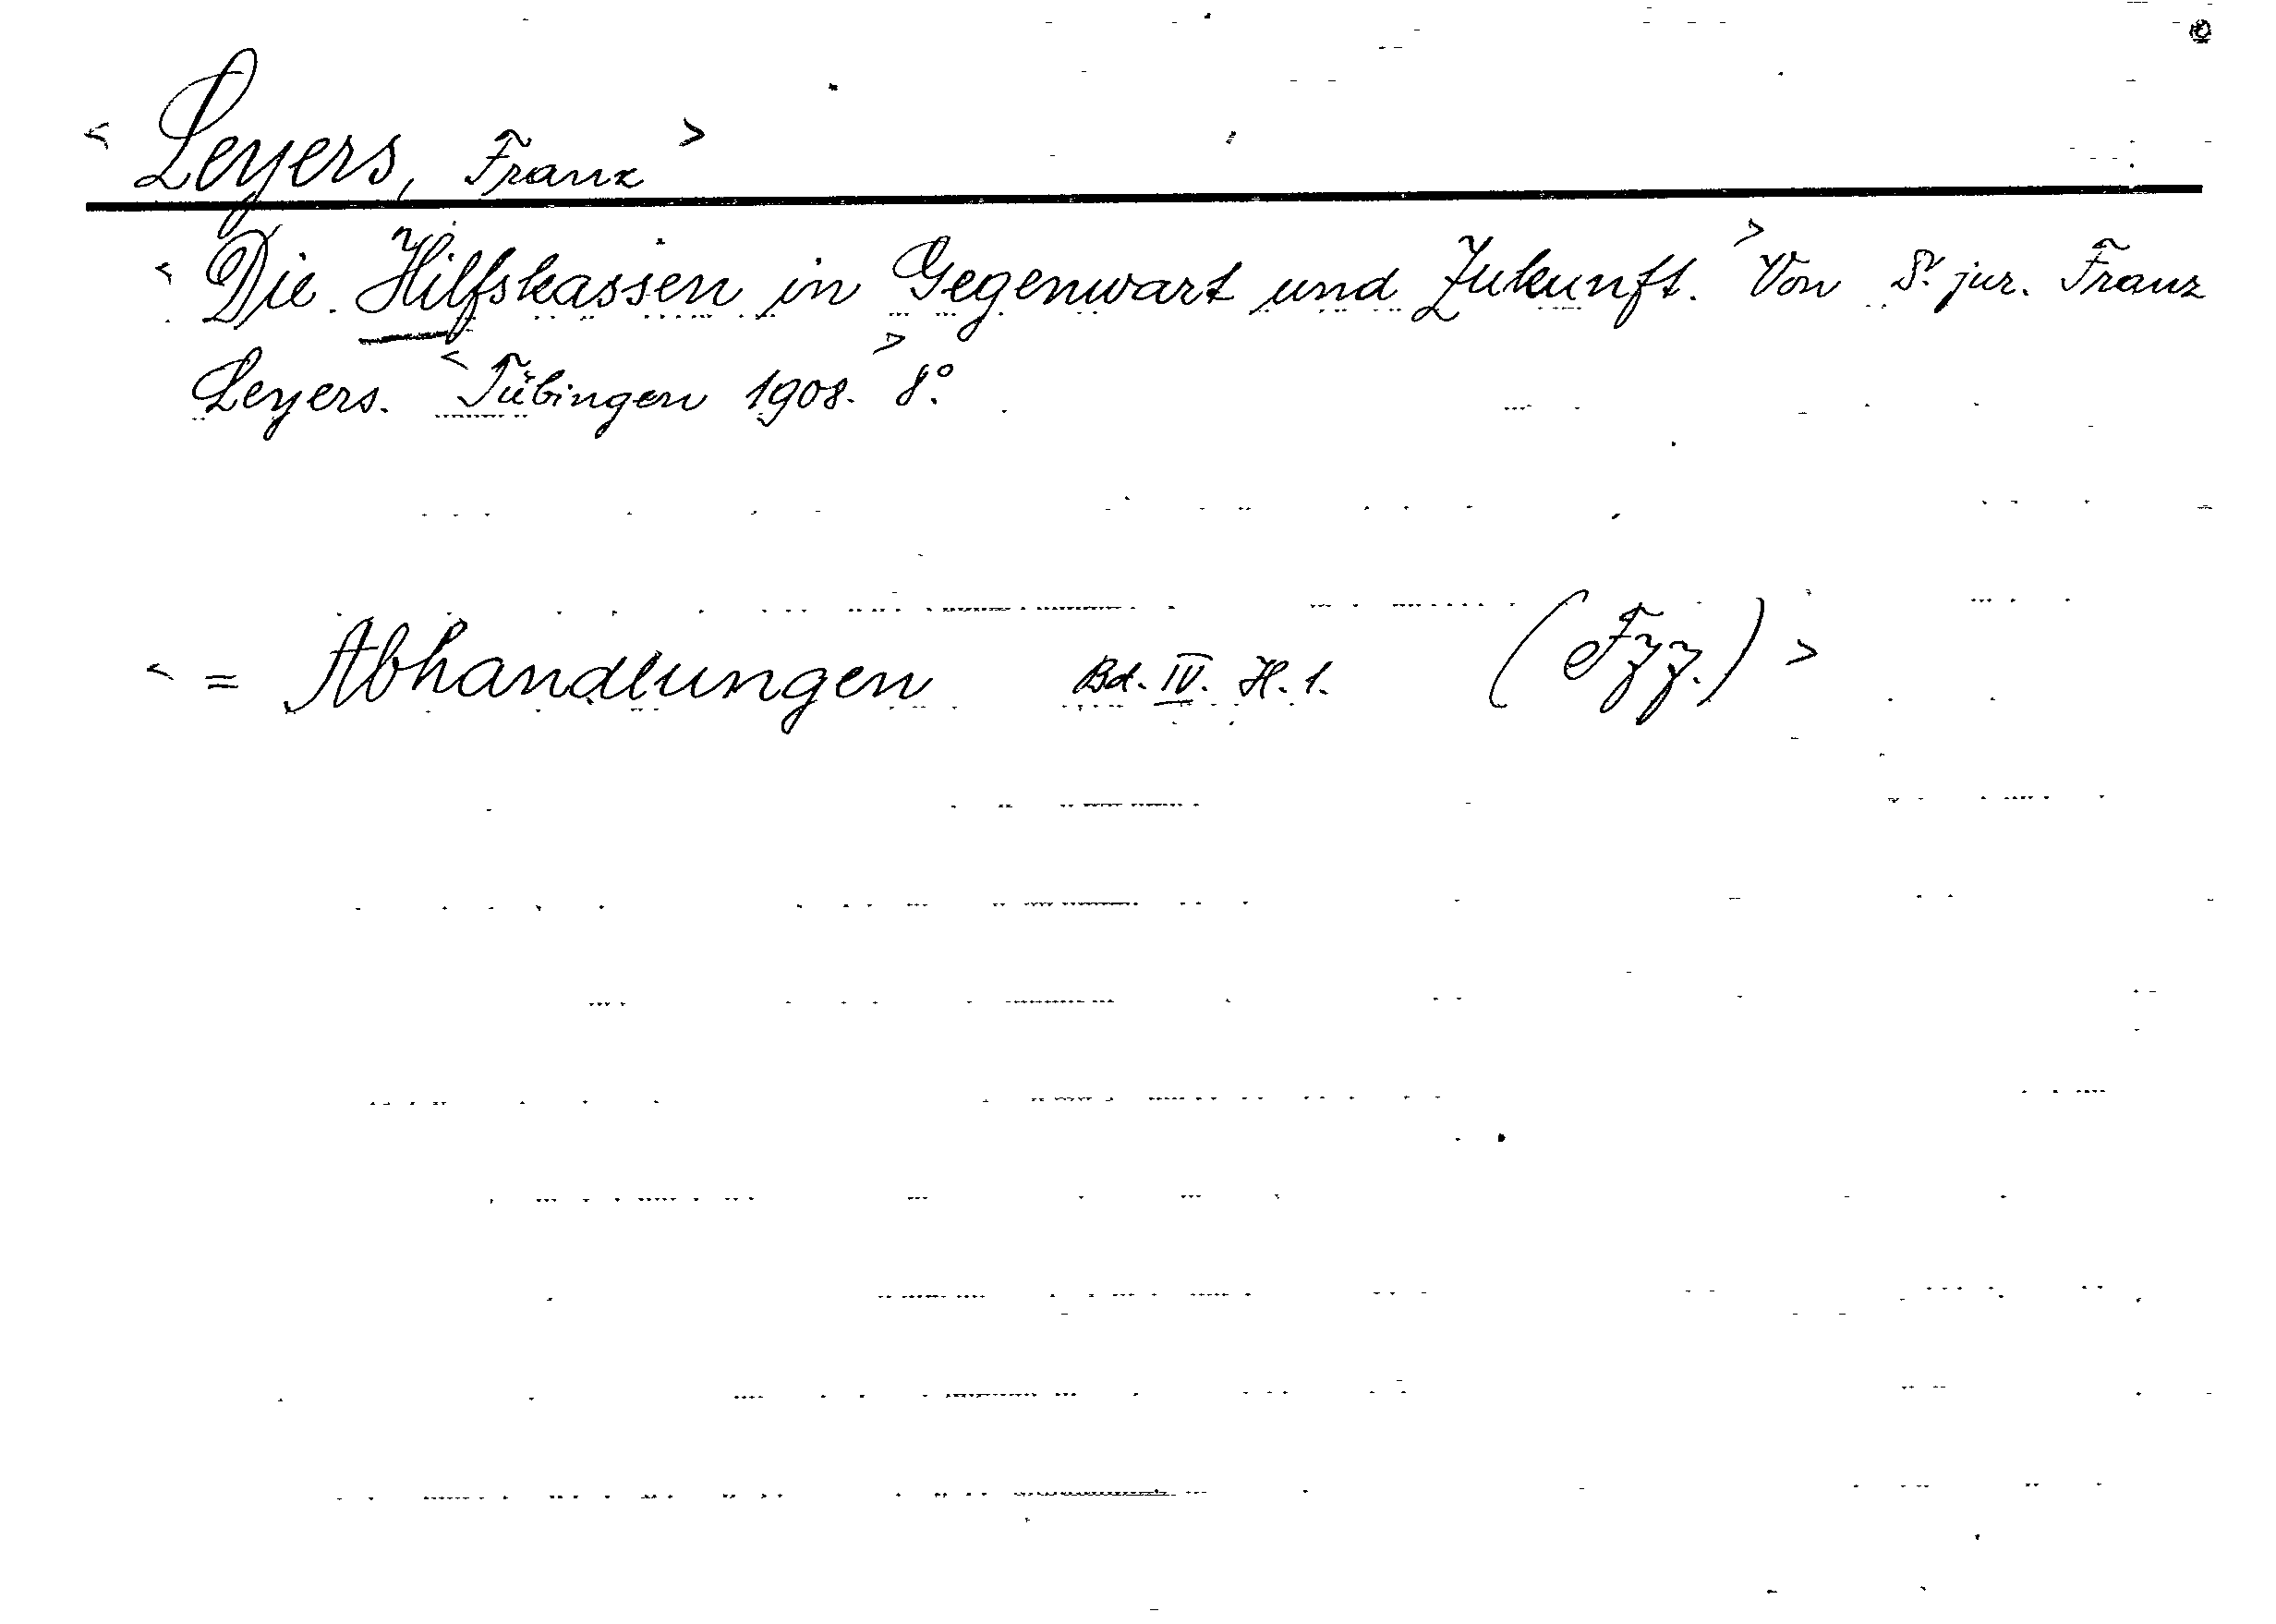 < Leyers, Franz >
< Die Hilfskassen in Gegenwart und Zukunft. > Von Dr. jur. Franz
Leyers. < Tübingen 1908. > 8°.
< = Abhandlungen Bd. IV. H. 1. (Fzz.) >